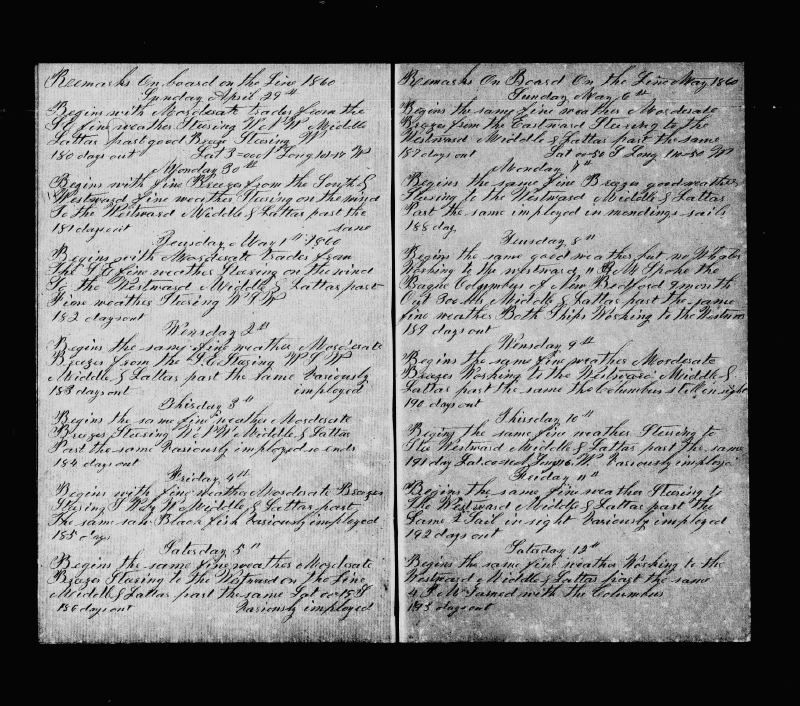 Reemarks On board on the Line 1860
Sunday April 29th
Begins with Morderate trades from the
S E fine weather Stearing W S W Middle
Lattar past good Breze Stearing W
180 days out Lat 3-00 Long W
Monday 30th
Begins with fine Breeze from the South &
Westward fine weather Stearing on the wind
To the Westward Middle & Lattar past the
181 days out same
Teusday May 1th 1860
Begins with Morderate trades from
The S E fine weather Stearing on the wind
To the Westward Middle & Lattar past
Fine weather Stearing W S W
182 days out
Wensday 2th
Begins the same fine weather Morderate
Breezes from the S E Stearing W S W
Middle & Lattar past the same Variously
183 days out imployed
Thirsday 3th
Begins the same fine weather Morderate
Brezes Stearing W S W Middle & Lattar
Past the same Variously imployed so ends
184 days out
Friday 4th
Begins with fine weather Morderate Breezes
Stearing W Middle & Lattar past
The same saw Black fish Variously imployed
185 days
Satesday 5th
Begins the same fine weather Morderate
Brezes Stearing to the Westward on the Line
Middle & Lattar past the same Lat 00-15 S
186 days out Variously imployed
Remarks On Board On the Line May 1860
Sunday May 6th
Begins the same fine weather Morderate
Brezes from the Eastward Stearing to the
Westward Middle & Lattar past the same
187 days out Lat 00-50 S Long 114-50 W
Monday 7th
Begins the same fine Brezes good weather
Stearing to the Westward Middle & Lattar
Past the same imployed in mendings sails
188 day
Teusday 8th
Begins the same good weather but no Whales
Working to the westward P M Spoke the
Barque Columbus of New Bedford 9 month
Out 300 bls Middle & Lattar past the same
fine weather Both Ships Working to the Westward
189 days out
Wensday 9th
Begins the same fine weather Morderate
Brezes Working to the Westward Middle &
Lattar past the same the Columbus still in sight
190 days out
Thirsday 10th
Begins the same fine weather Stearing to
The Westward Middle & Lattar past the same
191 day Lat Long 116 W Variously imployed
Friday 11th
Begins the same fine weather Stearing to
The Westward Middle & Lattar past the
Same 2 Sail in sight Variously imployed
192 days out
Satesday 12th
Begins the same fine weather Working to the
Westward Middle & Lattar past the same
4 P M Gamed with the Columbus
193 days out